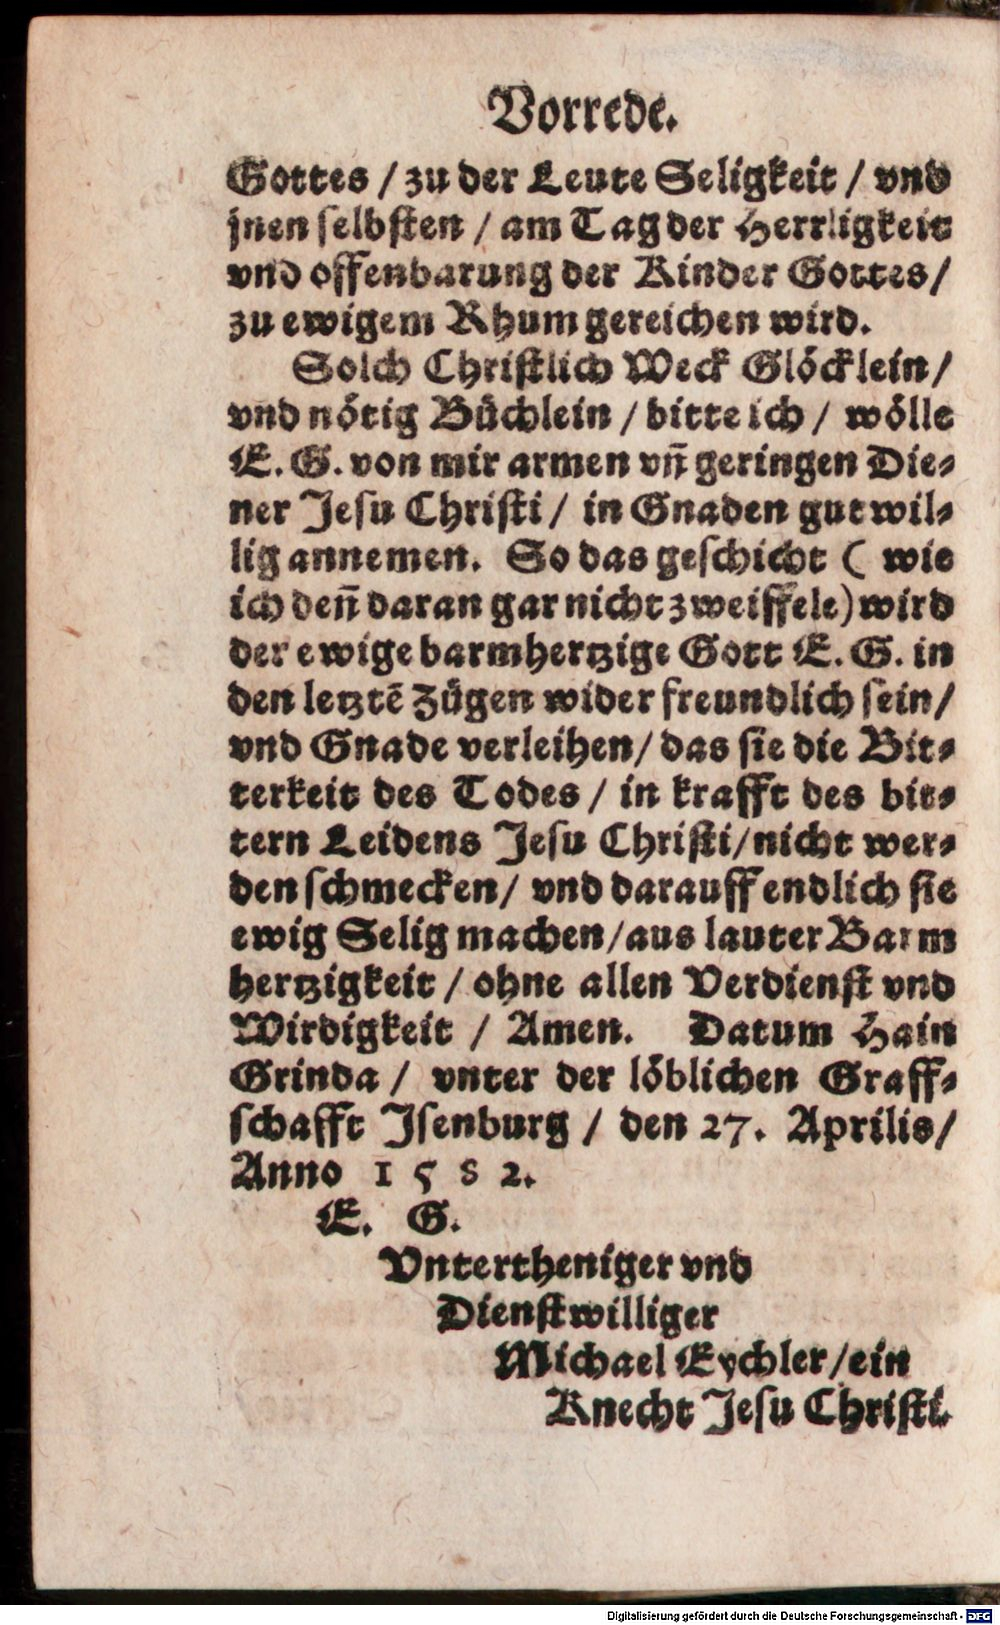 Vorrede.
Gottes / zu der Leute Seligkeit / vnd
jnen selbsten / am Tag der Herrligkeit
vnd offenbarung der Kinder Gottes /
zu ewigem Rhum gereichen wird.
Solch Christlich Weck Glöcklein /
vnd nötig Büchlein / bitte ich / wölle
E. G. von mir armen vn̄ geringen Die-
ner Jesu Christi / in Gnaden gutwil-
lig annemen. So das geschicht ( wie
ich den̄ daran gar nicht zweiffele) wird
der ewige barmhertzige Gott E. G. in
den letztē Zügen wider freundlich sein /
vnd Gnade verleihen / das sie die Bit-
terkeit des Todes / in krafft des bit-
tern Leidens Jesu Christi / nicht wer-
den schmecken / vnd darauff endlich sie
ewig Selig machen / aus lauter Barm
hertzigkeit / ohne allen Verdienst vnd
Wirdigkeit / Amen. Datum Hain
Grinda / vnter der löblichen Graff-
schafft Jsenburg / den 27. Aprilis /
Anno 1582.
E. G.
Vntertheniger vnd
Dienstwilliger
Michael Eychler / ein
Knecht Jesu Christi.
Digitalisierung gefördert durch die Deutsche Forschungsgemeinschaft - DFG